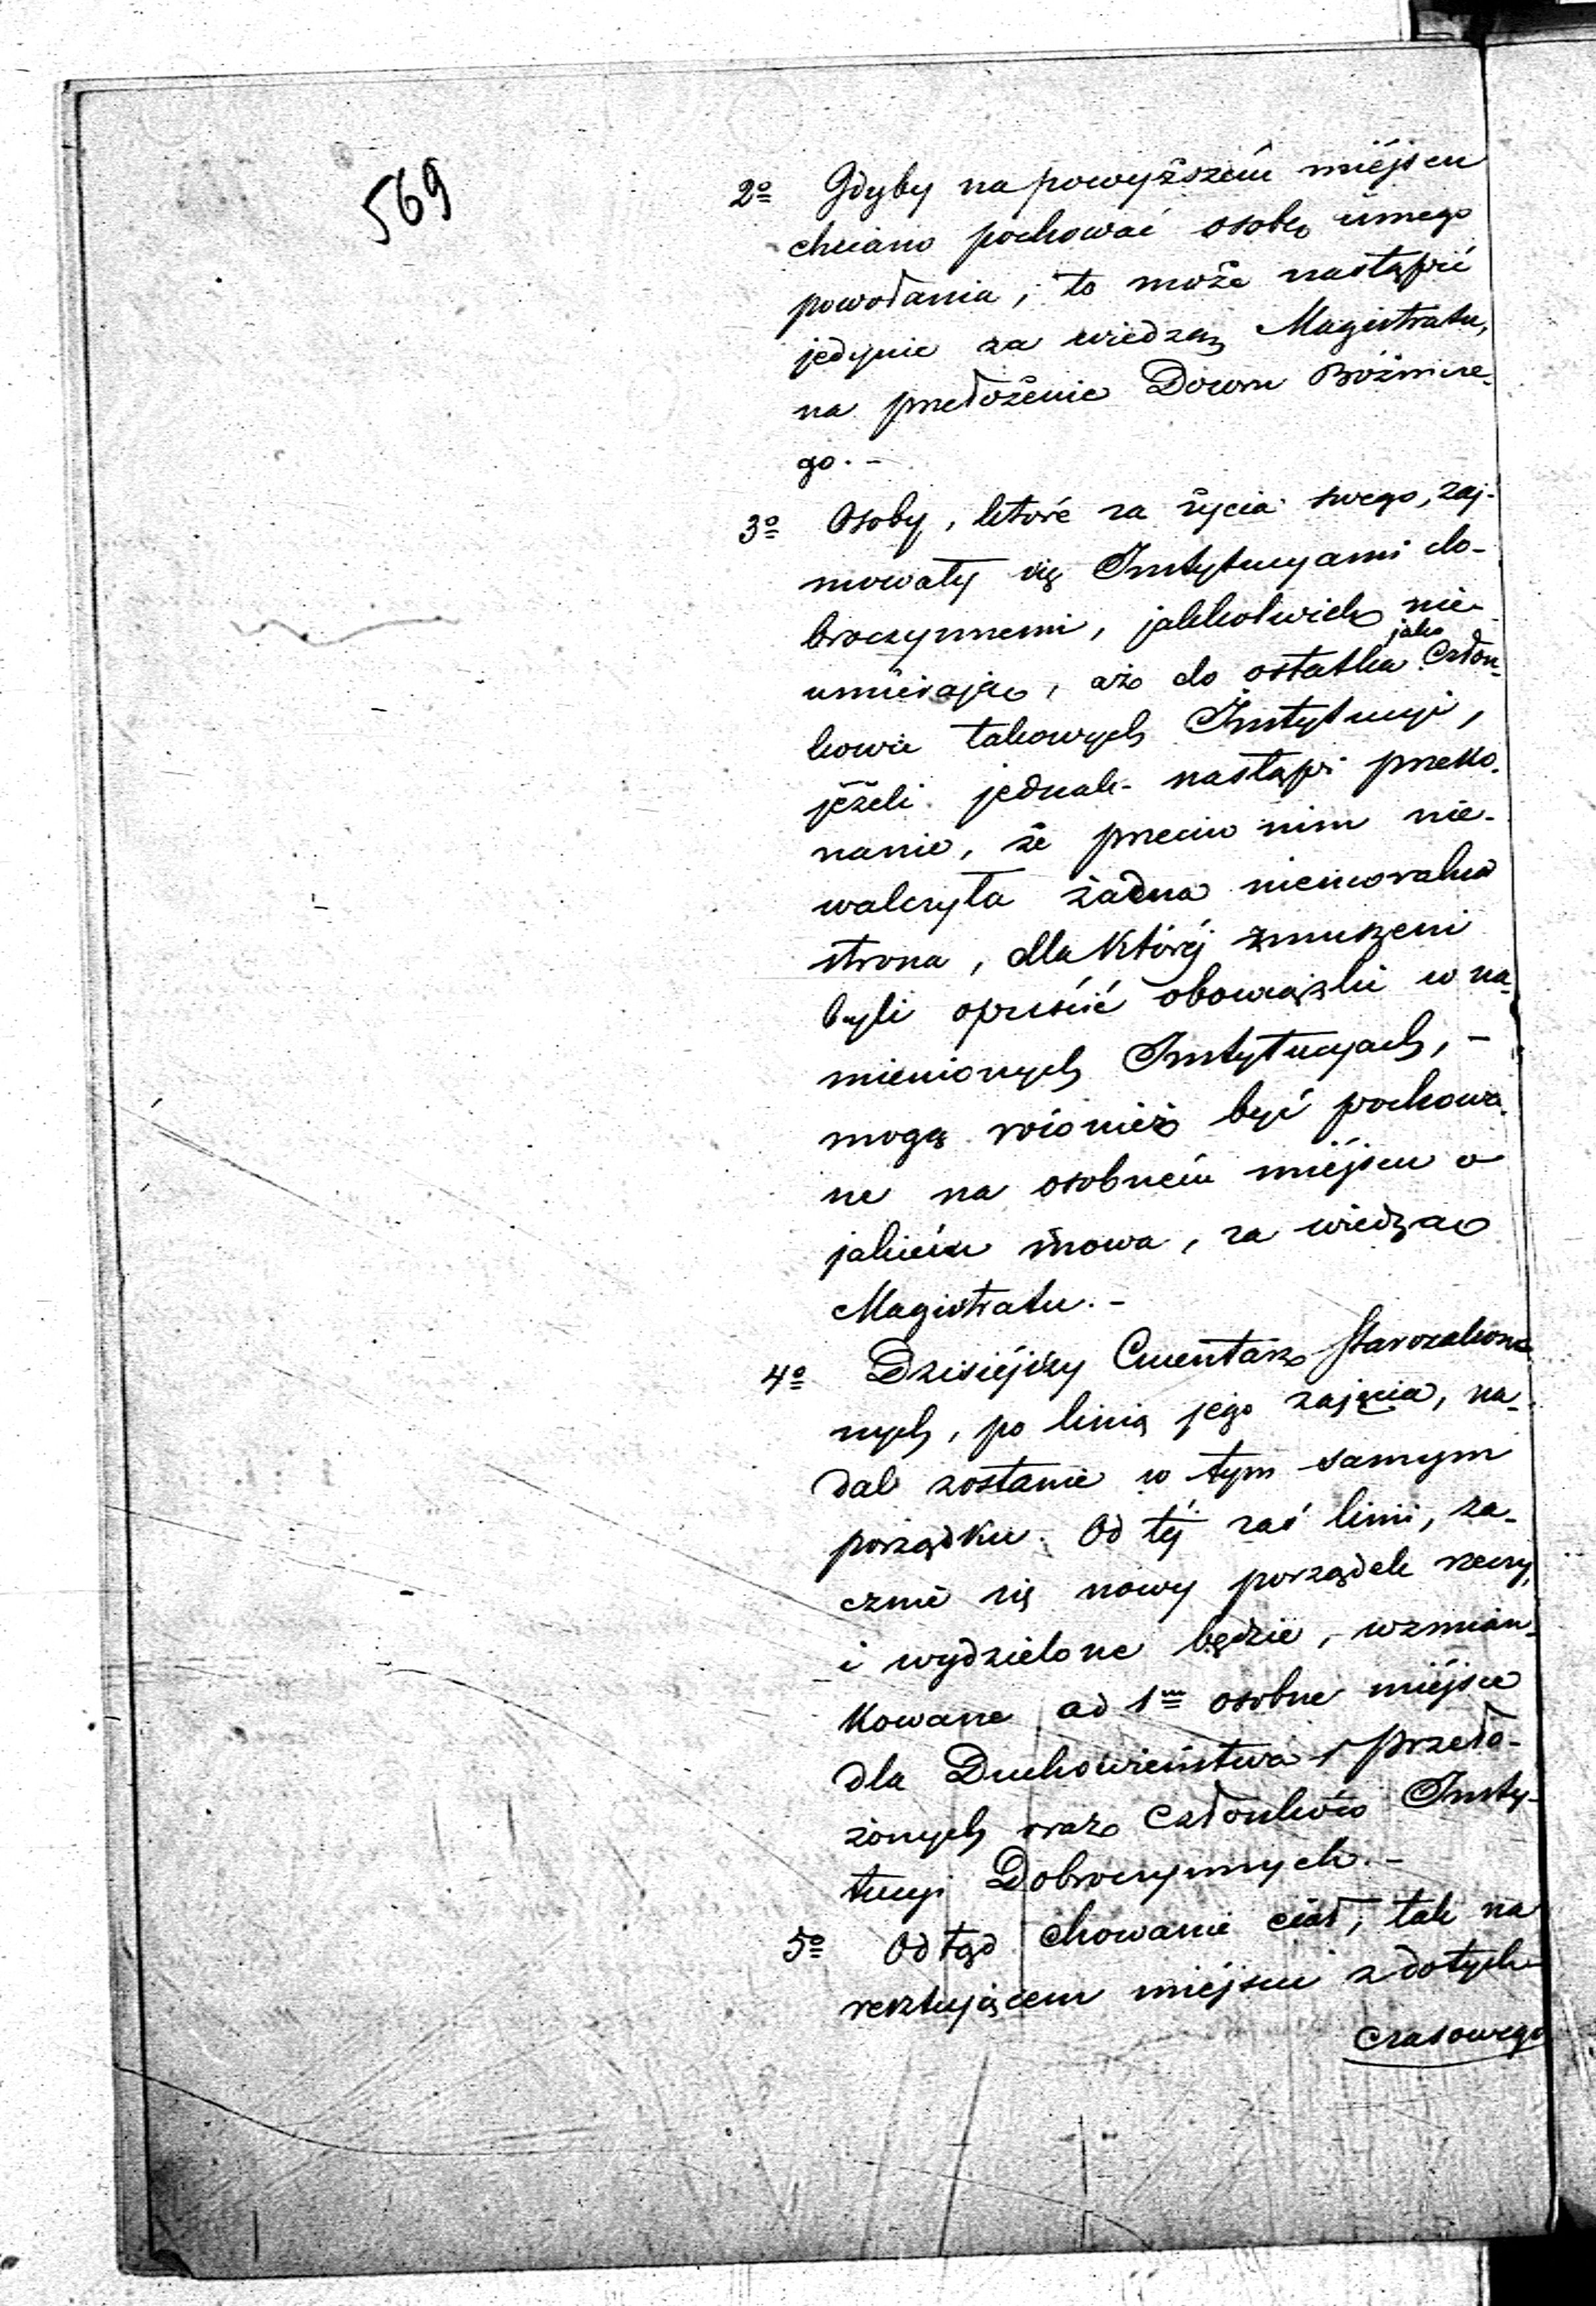 569
2o Gdyby na powyższém miéjscu
chciano pochować osobę innego
powołania, to może nastąpić
jedynie za wiedzą Magistratu,
na przedłożenie Dozoru Bóźnicze-
go. -
3o Osoby, które za życia swego, zaj-
mowały się Instytucyami do-
broczynnemi, jakkolwiek nie
umiérając, aż do ostatka jako Człon-
kowie takowych Instytucyi,
jeżeli jednak nastąpi przeko-
nanie, że przeciw nim nie-
walczyła żadna niemoralna
strona, dla któréj zmuszeni
byli opuścić obowiązki w na-
mienionych Instytucyach, -
mogą również być pochowa-
ne na osobném miéjscu o
jakiém mowa, za wiedzą
Magistratu. -
4o Dzisiéjszy Cmentarz Starozakon-
nych, po linią jego zajęcia, na-
dal zostanie w tym samym
porządku. Od téj zaś linii, za-
cznie się nowy porządek rzeczy,
i wydzielone będzie, wzmian-
kowane ad 1m osobne miéjsce
dla Duchowieństwa i przeło-
żonych oraz Członków Insty-
tucyi Dobroczynnych. -
5o Odtąd chowanie ciał, tak na
resztującem miéjscu z dotych-
czasowego